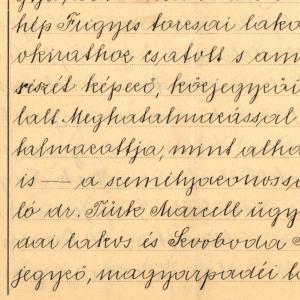 hép Frigyes torcsai lako
okirathoz csatolt s am
részét képező, közjegyzői
lalt Meghatalmazással
talmazottja, mint alha
is — a személyazonossá
ló dr. Türk Marcell ügy
dai lakos és Svoboda
jegyző, magyarpadéi la